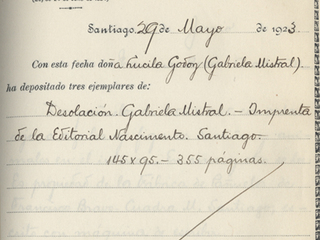 Santiago, 29 de Mayo de 1923.
Con esta fecha doña Lucila Godoy (Gabriela Mistral).
ha depositado tres ejemplares de:
Desolación. Gabriela Mistral. – Imprenta
de la Editorial Nascimento. Santiago.
145 x 95. – 355 páginas.